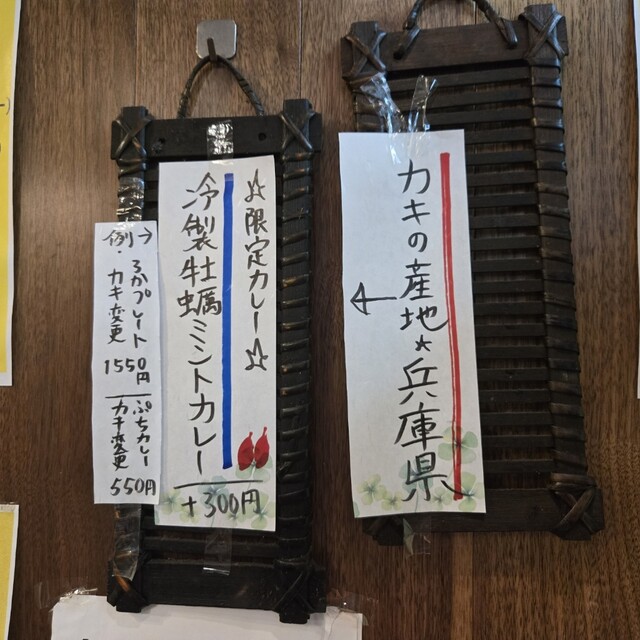 カキの産地★兵庫県
←
☆限定カレー☆
冷製牡蠣ミントカレー
+300円
例→
・ろかプレート
カキ変更
1550円
ぷちカレー
カキ変更
550円